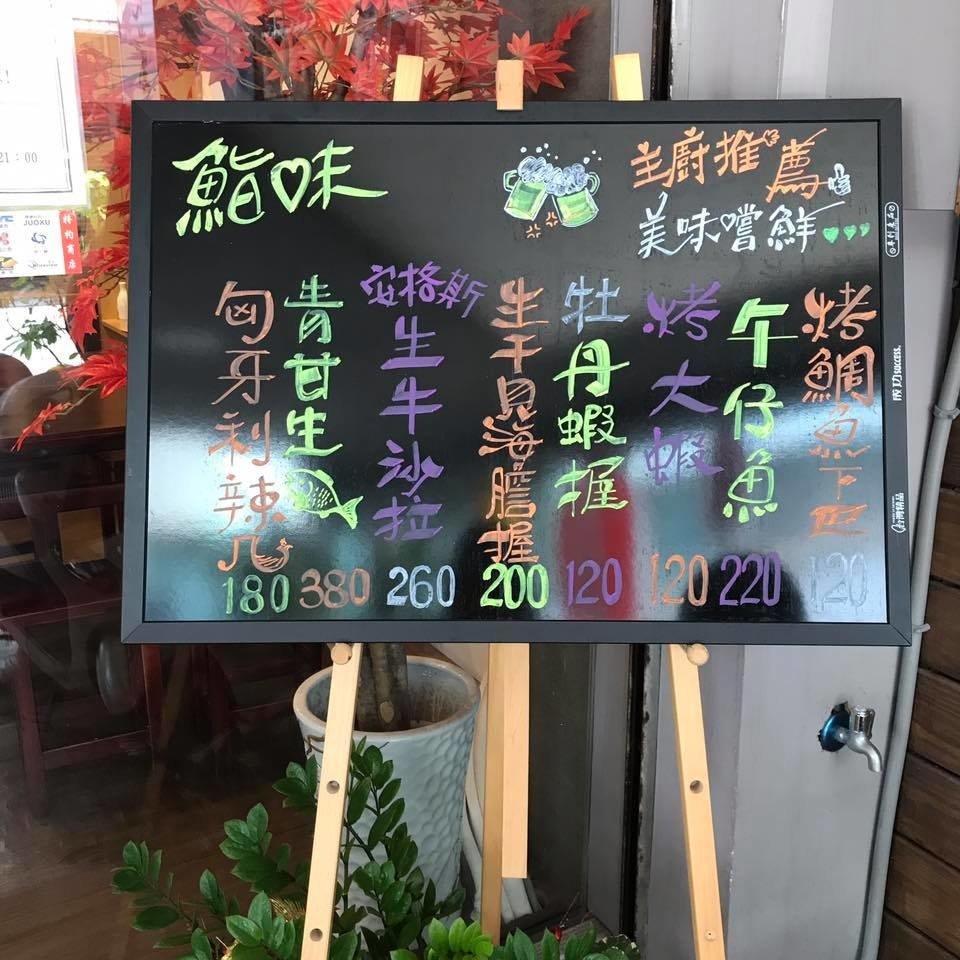 鮨味
主廚推薦
美味嚐鮮
烤鯛魚下巴 120
午仔魚 220
烤大蝦 120
牡丹蝦握 120
生干貝海膽握 200
安格斯生牛沙拉 260
青甘生 380
匈牙利辣 180
21:00
JUOXU
特約商店
成功 success.
台灣精品